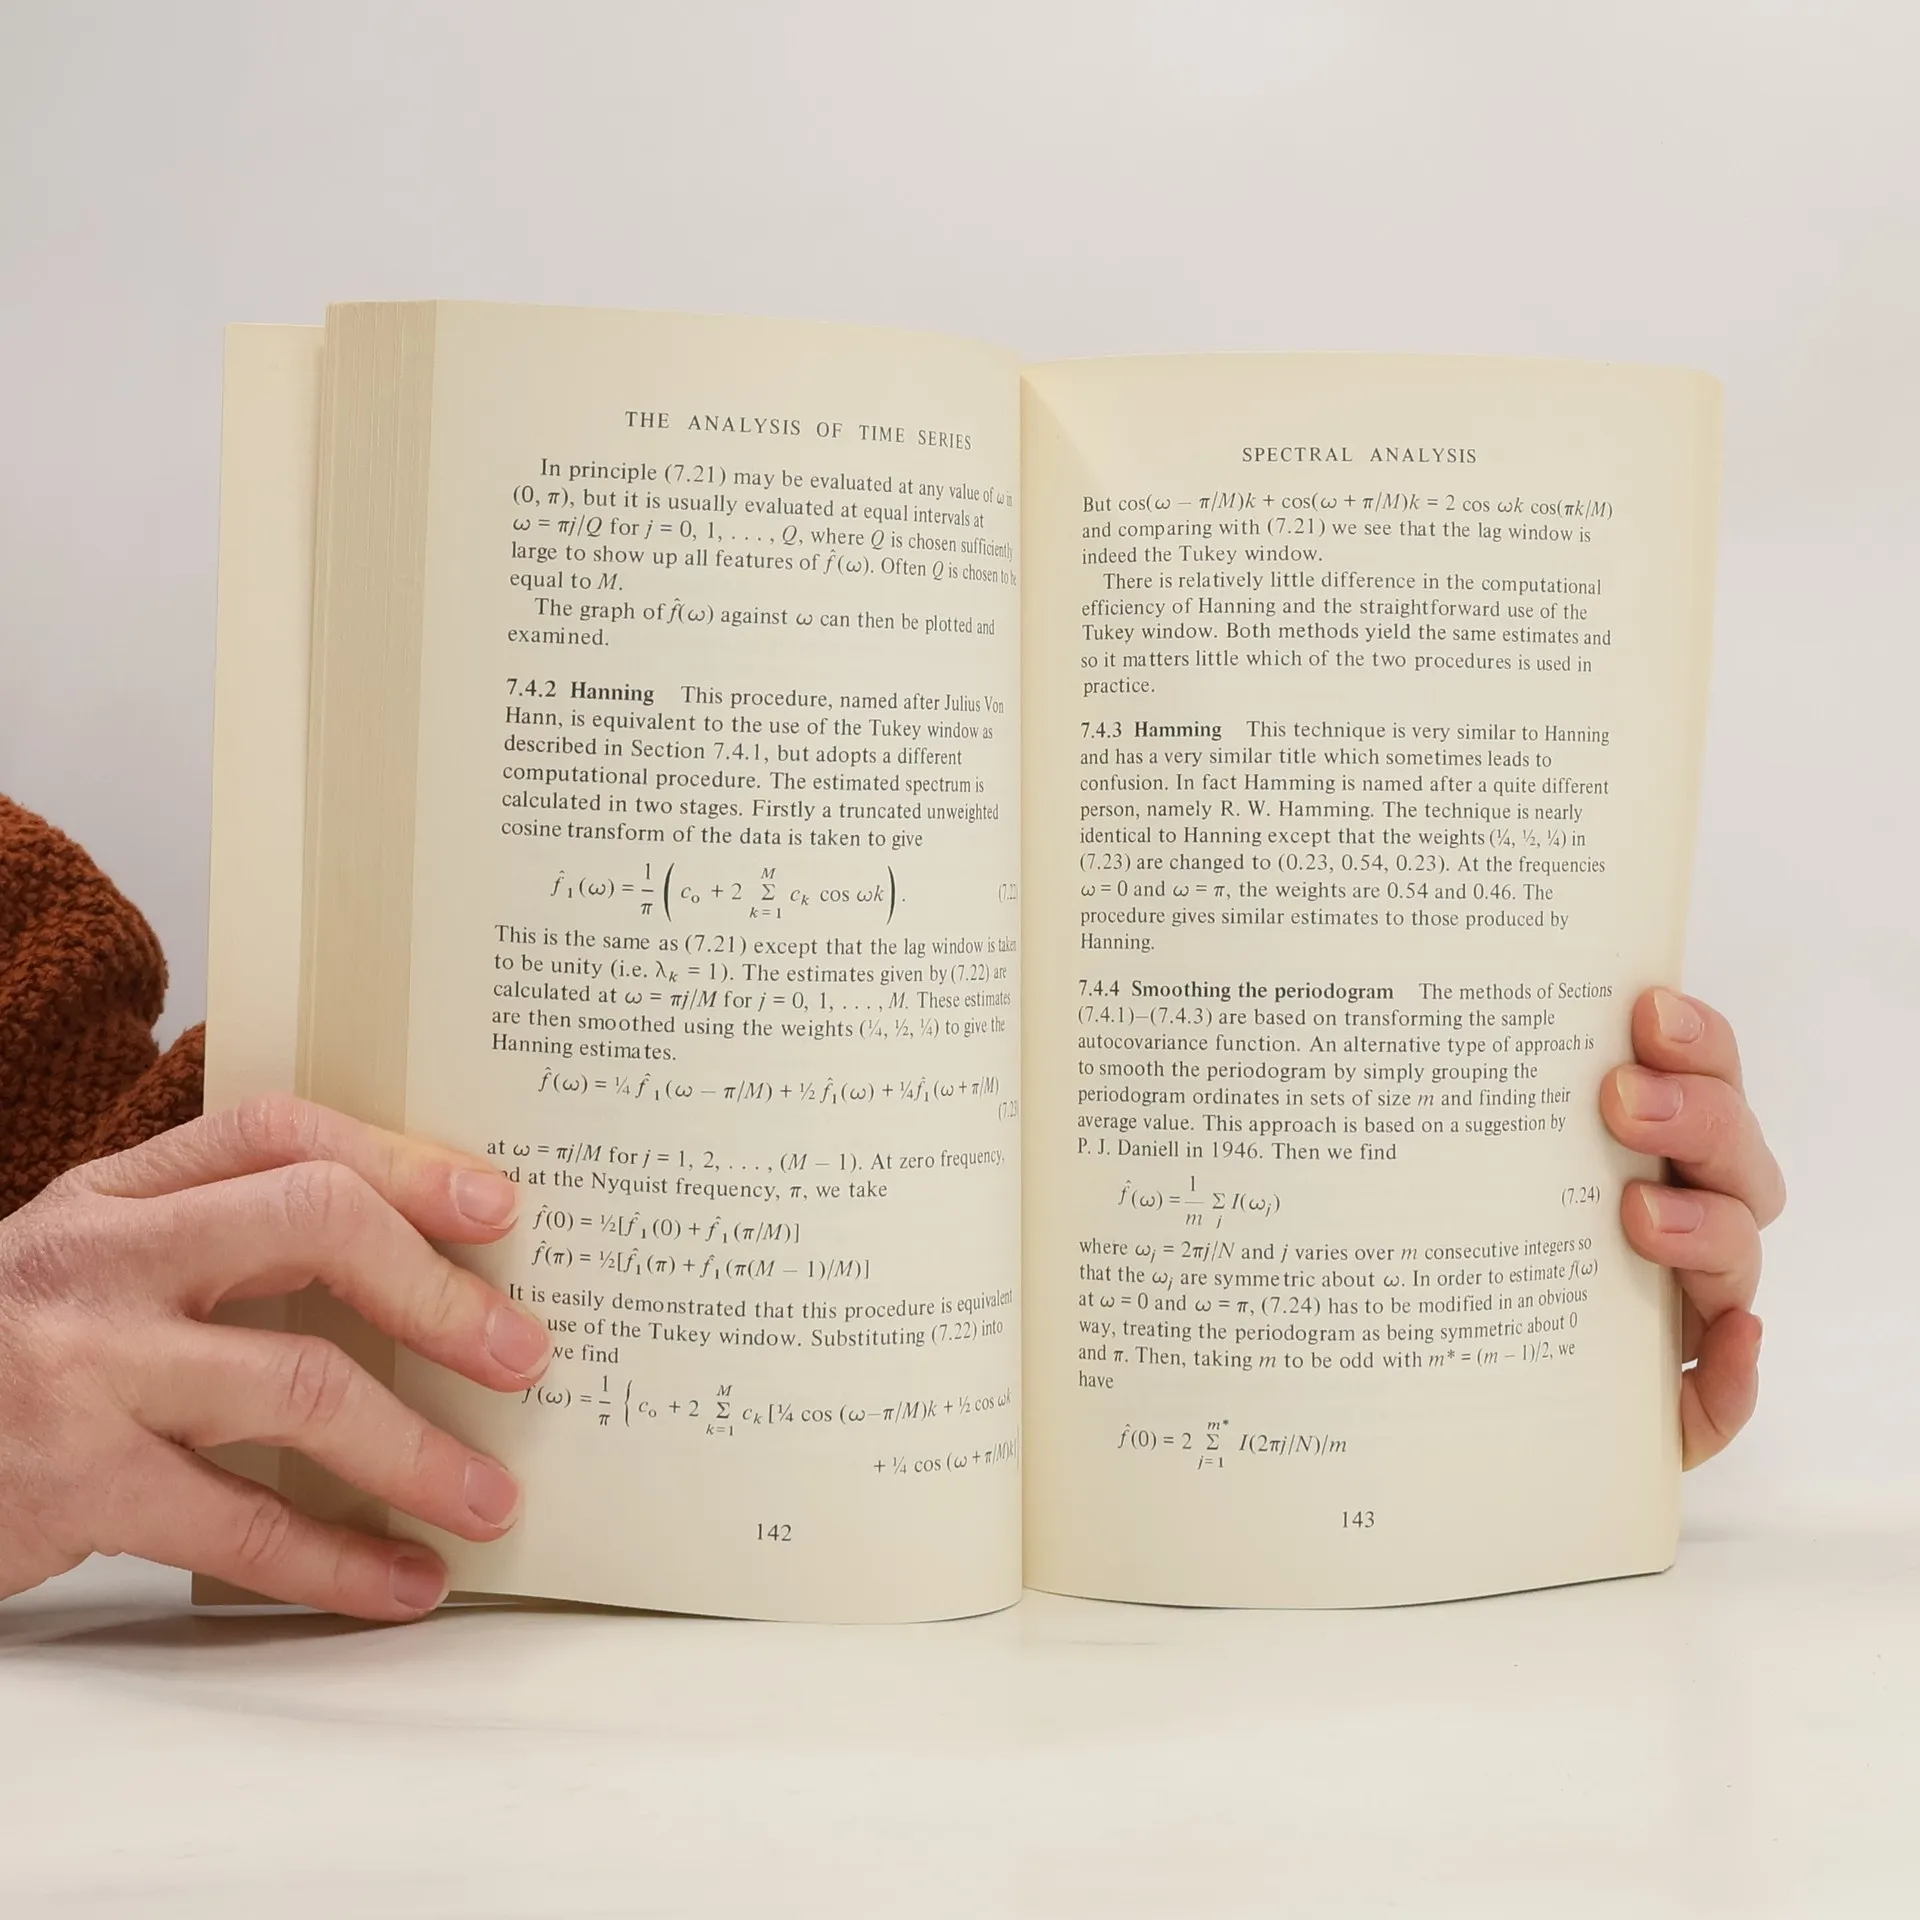 THE ANALYSIS OF TIME SERIES
In principle (7.21) may be evaluated at any value of ω in
(0, π), but it is usually evaluated at equal intervals at
ω = πj/Q for j = 0, 1, . . . , Q, where Q is chosen sufficiently
large to show up all features of f̂(ω). Often Q is chosen to be
equal to M.
The graph of f̂(ω) against ω can then be plotted and
examined.
7.4.2 Hanning This procedure, named after Julius Von
Hann, is equivalent to the use of the Tukey window as
described in Section 7.4.1, but adopts a different
computational procedure. The estimated spectrum is
calculated in two stages. Firstly a truncated unweighted
cosine transform of the data is taken to give
f̂₁(ω) = 1/π ( c₀ + 2 Σ_{k=1}^{M} cₖ cos ωk ). (7.22
This is the same as (7.21) except that the lag window is taken
to be unity (i.e. λₖ = 1). The estimates given by (7.22) are
calculated at ω = πj/M for j = 0, 1, . . . , M. These estimates
are then smoothed using the weights (¼, ½, ¼) to give the
Hanning estimates.
f̂(ω) = ¼ f̂₁(ω − π/M) + ½ f̂₁(ω) + ¼ f̂₁(ω + π/M)
(7.23
at ω = πj/M for j = 1, 2, . . . , (M − 1). At zero frequency,
at the Nyquist frequency, π, we take
f̂(0) = ½[f̂₁(0) + f̂₁(π/M)]
f̂(π) = ½[f̂₁(π) + f̂₁(π(M − 1)/M)]
It is easily demonstrated that this procedure is equivalent
use of the Tukey window. Substituting (7.22) into
we find
f̂(ω) = 1/π { c₀ + 2 Σ_{k=1}^{M} cₖ [¼ cos (ω−π/M)k + ½ cos ωk
+ ¼ cos (ω + π/M)k]
142
SPECTRAL ANALYSIS
But cos(ω − π/M)k + cos(ω + π/M)k = 2 cos ωk cos(πk/M)
and comparing with (7.21) we see that the lag window is
indeed the Tukey window.
There is relatively little difference in the computational
efficiency of Hanning and the straightforward use of the
Tukey window. Both methods yield the same estimates and
so it matters little which of the two procedures is used in
practice.
7.4.3 Hamming This technique is very similar to Hanning
and has a very similar title which sometimes leads to
confusion. In fact Hamming is named after a quite different
person, namely R. W. Hamming. The technique is nearly
identical to Hanning except that the weights (¼, ½, ¼) in
(7.23) are changed to (0.23, 0.54, 0.23). At the frequencies
ω = 0 and ω = π, the weights are 0.54 and 0.46. The
procedure gives similar estimates to those produced by
Hanning.
7.4.4 Smoothing the periodogram The methods of Sections
(7.4.1)–(7.4.3) are based on transforming the sample
autocovariance function. An alternative type of approach is
to smooth the periodogram by simply grouping the
periodogram ordinates in sets of size m and finding their
average value. This approach is based on a suggestion by
P. J. Daniell in 1946. Then we find
f̂(ω) = 1/m Σ_j I(ωⱼ) (7.24)
where ωⱼ = 2πj/N and j varies over m consecutive integers so
that the ωⱼ are symmetric about ω. In order to estimate f(ω)
at ω = 0 and ω = π, (7.24) has to be modified in an obvious
way, treating the periodogram as being symmetric about 0
and π. Then, taking m to be odd with m* = (m − 1)/2, we
have
f̂(0) = 2 Σ_{j=1}^{m*} I(2πj/N)/m
143